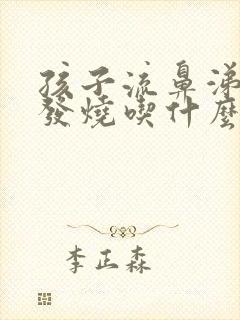 孩子流鼻涕
發燒喫什麼
李正森